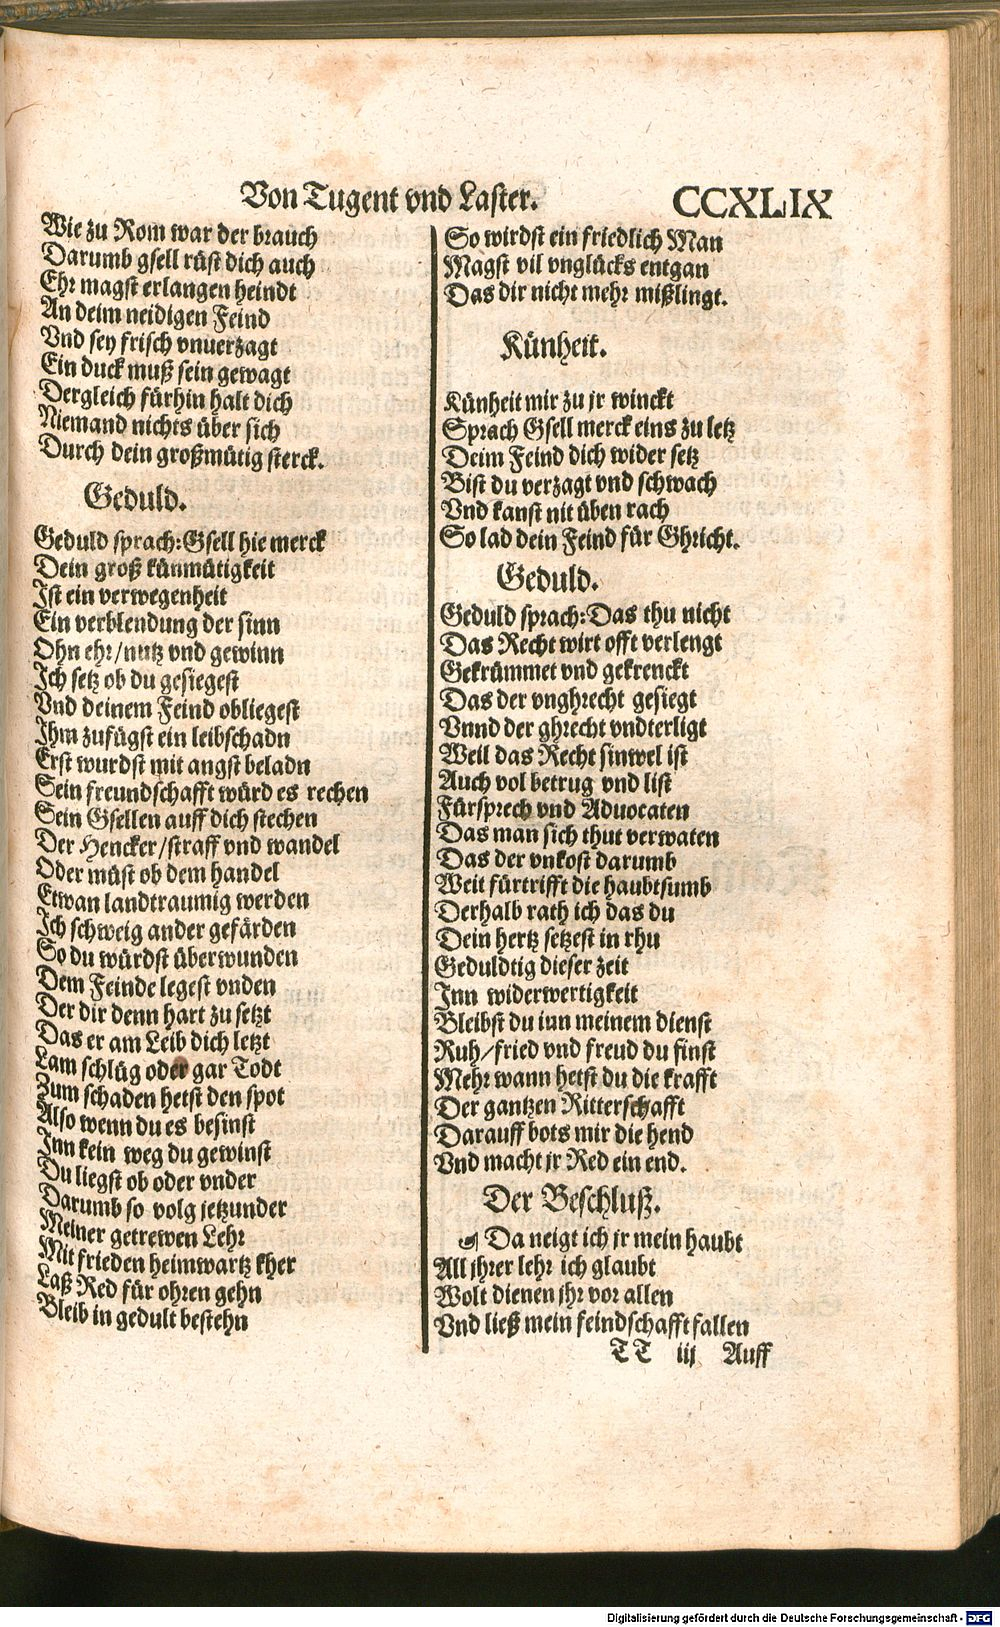 Von Tugent vnd Laster.
CCXLIX
Wie zu Rom war der brauch
Darumb gsell rüst dich auch
Ehr magst erlangen heindt
An deim neidigen Feind
Vnd sey frisch vnuerzagt
Ein duck muß sein gewagt
Dergleich fürhin halt dich
Niemand nichts über sich
Durch dein großmütig sterck.
Geduld.
Geduld sprach: Gsell hie merck
Dein groß künmütigkeit
Ist ein verwegenheit
Ein verblendung der sinn
Ohn ehr/nutz vnd gewinn
Ich setz ob du gesiegest
Vnd deinem Feind obliegest
Ihm zufügst ein leibschadn
Erst wurdst mit angst beladn
Sein freundschafft würd es rechen
Sein Gsellen auff dich stechen
Der Hencker/straff vnd wandel
Oder müst ob dem handel
Etwan landtraumig werden
Ich schweig ander gefärden
So du würdst überwunden
Dem Feinde legest vnden
Der dir denn hart zu setzt
Das er am Leib dich letzt
Lam schlüg oder gar Todt
Zum schaden hetst den spot
Also wenn du es besinst
Inn kein weg du gewinst
Du liegst ob oder vnder
Darumb so volg jetzunder
Meiner getrewen Lehr
Mit frieden heimwartz kher
Laß Red für ohren gehn
Bleib in gedult bestehn
So wirdst ein friedlich Man
Magst vil vnglücks entgan
Das dir nicht mehr mißlingt.
Künheit.
Künheit mir zu jr winckt
Sprach Gsell merck eins zu letz
Deim Feind dich wider setz
Bist du verzagt vnd schwach
Vnd kanst nit üben rach
So lad dein Feind für Ghricht.
Geduld.
Geduld sprach: Das thu nicht
Das Recht wirt offt verlengt
Gekrümmet vnd gekrenckt
Das der vnghrecht gesiegt
Vnnd der ghrecht vndterligt
Weil das Recht sinwel ist
Auch vol betrug vnd list
Fürsprech vnd Aduocaten
Das man sich thut verwaten
Das der vnkost darumb
Weit fürtrifft die haubtsumb
Derhalb rath ich das du
Dein hertz setzest in rhu
Geduldtig dieser zeit
Inn widerwertigkeit
Bleibst du inn meinem dienst
Ruh/fried vnd freud du finst
Mehr wann hetst du die krafft
Der gantzen Ritterschafft
Darauff bots mir die hend
Vnd macht jr Red ein end.
Der Beschluß.
Da neigt ich jr mein haubt
All jhrer lehr ich glaubt
Wolt dienen jhr vor allen
Vnd ließ mein feindschafft fallen
TT iij Auff
Digitalisierung gefördert durch die Deutsche Forschungsgemeinschaft - DFG